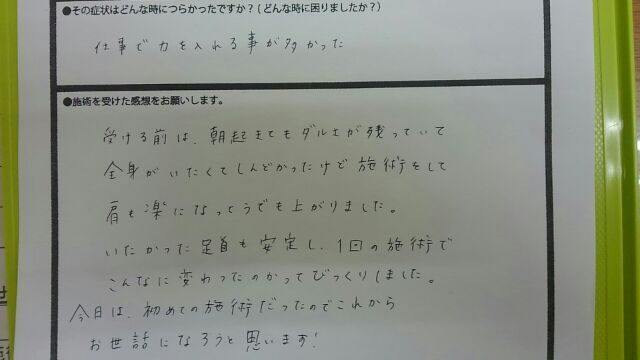 ●その症状はどんな時につらかったですか？（どんな時に困りましたか？）
仕事で力を入れる事が多かった
●施術を受けた感想をお願いします。
受ける前は、朝起きてもダルさが残っていて
全身がいたくてしんどかったけど施術をして
肩も楽になってうでも上がりました。
いたかった足首も安定し、1回の施術で
こんなに変わったのかってびっくりしました。
今日は、初めての施術だったのでこれから
お世話になろうと思います!